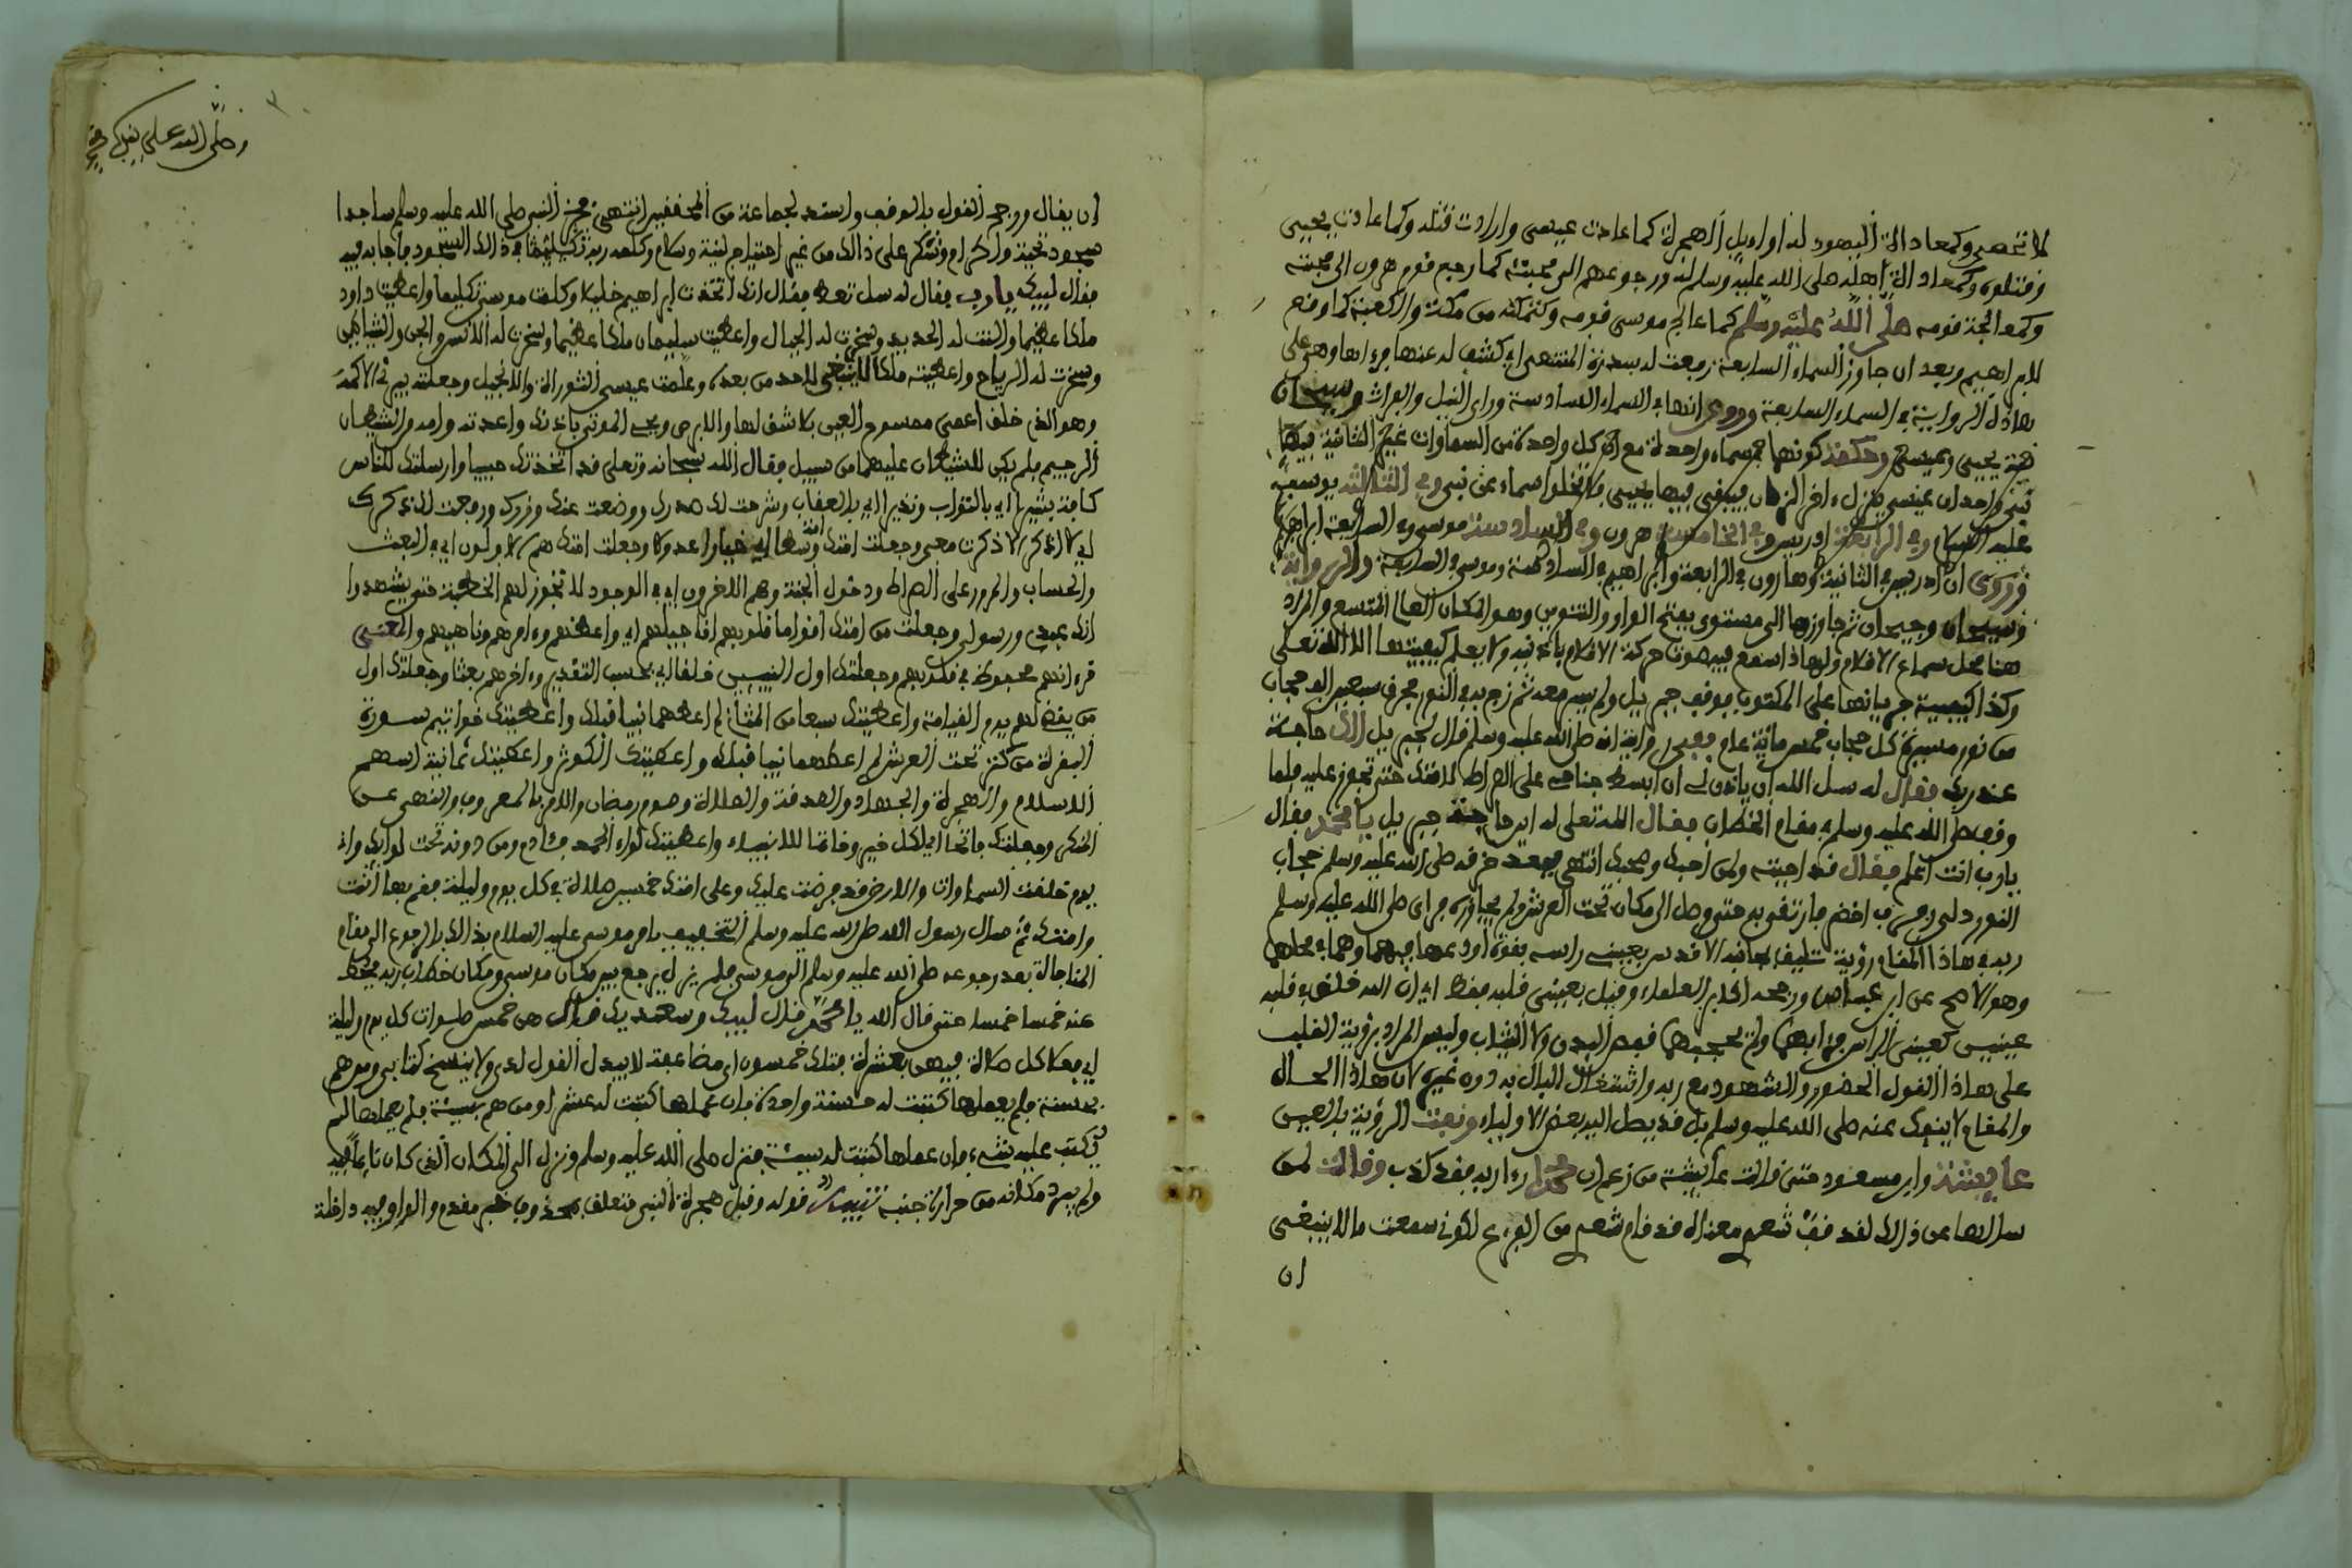 لا تحصى وكمعاداة اليهود له اوايل الهجرة كما عادت عيسى وارادت قتله وكما عادت يحيى
وقتلوه وكمعاداة اهله صلى الله عليه وسلم له ورجوعهم الى محبته كما رجع قوم هرون الى محبته
وكمعالجة قومه صلى الله عليه وسلم كما عالج موسى قومه وكتمكنه من مكة والكعبة كما وقع
لابراهيم وبعد ان جاوز السماء السابعة رفعت له سدرة المنتهى اي كشف له عنها فرءاها وهي على
هاذه الرواية في السماء السابعة وروي انها في السماء السادسة وراى النيل والفرات وسيحان
يحيى وعيسى وحكمة كونهما في سماء واحدة مع ان كل واحدة من السماوات غير الثانية فيها
نبي واحد ان عيسى ينزل ءاخر الزمان فيبقى فيها يحيى فلا تخلوا سماء عن نبي وفي الثالثة يوسف
عليه السلام وفي الرابعة ادريس وفي الخامسة هرون وفي السادسة موسى وفي السابعة ابراهيم
وروي ان ادريس في الثانية وهارون في الرابعة وابراهيم في السادسة وموسى في السابعة والرواية
وسيحان وجيحان ثم جاوزها الى مستوى بفتح الواو والتنوين وهو المكان العالي المتسع والمراد
هنا محل سماع الاقلام ولهاذا سمع فيه صوت حركة الاقلام باذنيه ولا يعلم كيفيتها الا الله تعلى
وكذا كيفية جريانها على المكتوب فوقف جبريل ولم يسر معه ثم زج به في النور فخرق سبعين الف حجاب
من نور مسيرة كل حجاب خمسمائة عام وفي رواية انه صلى الله عليه وسلم قال لجبريل ألك حاجة
عند ربك فقال له سل الله ان ياذن لي ان ابسط جناحي على الصراط لامتك حتى تجوز عليه فلما
وقف صلى الله عليه وسلم في مقام الخطاب فقال الله تعلى له اين حاجة جبريل يا محمد فقال
يارب انت اعلم فقال قد اجبته ولمن احبك وصحبك انتهى فبعد خرقه صلى الله عليه وسلم حجاب
النور دلي رفرف اخضر فارتقى به حتى وصل الى مكان تحت العرش ولم يجاوزه فراى صلى الله عليه وسلم
ربه في هاذا المقام رؤية تليق بجنابه الاقدس بعيني راسه بقوة اودعها فيهما وهما في محلهما
وهو الاصح عن ابن عباس ورجحه اكابر العلماء وقيل بعيني قلبه فقط اي ان الله خلق في قلبه
عينين كعيني الراس فراى بهما ولم يحجبهما قفص البدن ولا الثياب وليس المراد برؤية القلب
على هاذا القول الحضور والشهود مع ربه واشتغال البال به دون غيره لان هاذا الحال
والمقام لا ينفك عنه صلى الله عليه وسلم بل قد يصل اليه بعض الاولياء ونفت الرؤية بالعين
عايشة وابن مسعود حتى قالت عايشة من زعم ان محمدا رءا ربه فقد كذب وقالت لمن
سالها عن ذالك لقد قف شعري معناه قد قام شعري من الفزع لكوني سمعت ما لا ينبغي
ان
وصلى الله على
ان يقال ورجح القول بالوقف واسند لجماعة من المحققين انتهى فخر النبي صلى الله عليه وسلم ساجدا
سجود تحية واكرام وشكر على ذالك من غير احتياج لنية وسلام وكلمه ربه تكليما في ذالك السجود فاجابه فيه
فقال لبيك يارب فقال له سل تعط فقال انك اتخذت ابراهيم خليلا وكلمت موسى تكليما واعطيت داود
ملكا عظيما والنت له الحديد وسخرت له الجبال واعطيت سليمان ملكا عظيما وسخرت له الانس والجن والشياطين
وسخرت له الرياح واعطيته ملكا لا ينبغي لاحد من بعده وعلمت عيسى التوراة والانجيل وجعلته يبرئ الاكمه
وهو الذي خلق اعمى ممسوح العين بلا شق لها والابرص ويحي الموتى باذنك واعذته وامه من الشيطان
الرجيم فلم يكن للشيطان عليهما من سبيل فقال الله سبحانه وتعلى قد اتخذتك حبيبا وارسلتك للناس
كافة بشيرا اي بالثواب ونذيرا اي بالعقاب وشرحت لك صدرك ووضعت عنك وزرك ورفعت لك ذكرك
اي لا اذكر الا ذكرت معي وجعلت امتك امة وسطا اي خيارا عدولا وجعلت امتك هم الاولون اي في البعث
والحساب والمرور على الصراط ودخول الجنة وهم الاخرون اي في الوجود لا تجوز لهم الخطبة حتى يشهدوا
انك عبدي ورسولي وجعلت من امتك اقواما قلوبهم اناجيلهم اي واعظهم وءامرهم وناهيهم والمعنى
قرءانهم محفوظ في قلوبهم وجعلتك اول النبيين خلقا اي بحسب التقدير وءاخرهم بعثا وجعلتك اول
من يقضى لهم يوم القيامة واعطيتك سبعا من المثاني لم اعطهما نبيا قبلك واعطيتك خواتيم سورة
البقرة من كنز تحت العرش لم اعطهما نبيا قبلك واعطيتك الكوثر واعطيتك ثمانية اسهم
الاسلام والهجرة والجهاد والصدقة والصلاة وصوم رمضان والامر بالمعروف والنهي عن
المنكر وجعلتك فاتحا اي لكل خير وخاتما للانبياء واعطيتك لواء الحمد فئادم ومن دونه تحت لوائك واني
يوم خلقت السماوات والارض قد فرضت عليك وعلى امتك خمسين صلاة في كل يوم وليلة فقم بها انت
وامتك ثم سال رسول الله صلى الله عليه وسلم التخفيف بامر موسى عليه السلام بذالك بالرجوع الى مقام
المناجاة بعد رجوعه صلى الله عليه وسلم الى موسى فلم يزل يرجع بين مكان موسى ومكان خطاب ربه فيحط
عنه خمسا خمسا حتى قال الله يا محمد قال لبيك وسعديك قال هن خمس صلوات كل يوم وليلة
اي فعلا كل صلاة فيهن بعشرة فتلك خمسون اي مضاعفة لا يبدل القول لدي ولا ينسخ كتابي ومن هم
بحسنة فلم يعملها كتبت له حسنة واحدة فان عملها كتبت له عشرا ومن هم بسيئة فلم يعملها لم
تكتب عليه شيء وان عملها كتبت له سيئة فنزل صلى الله عليه وسلم ونزل الى المكان الذي كان نايما فيه
ولم يبرد مكانه من حرارة جنبه تنبيهات قوله وقبل هجرة النبي متعلق بمحذوف خبر مقدم والواو فيه داخلة